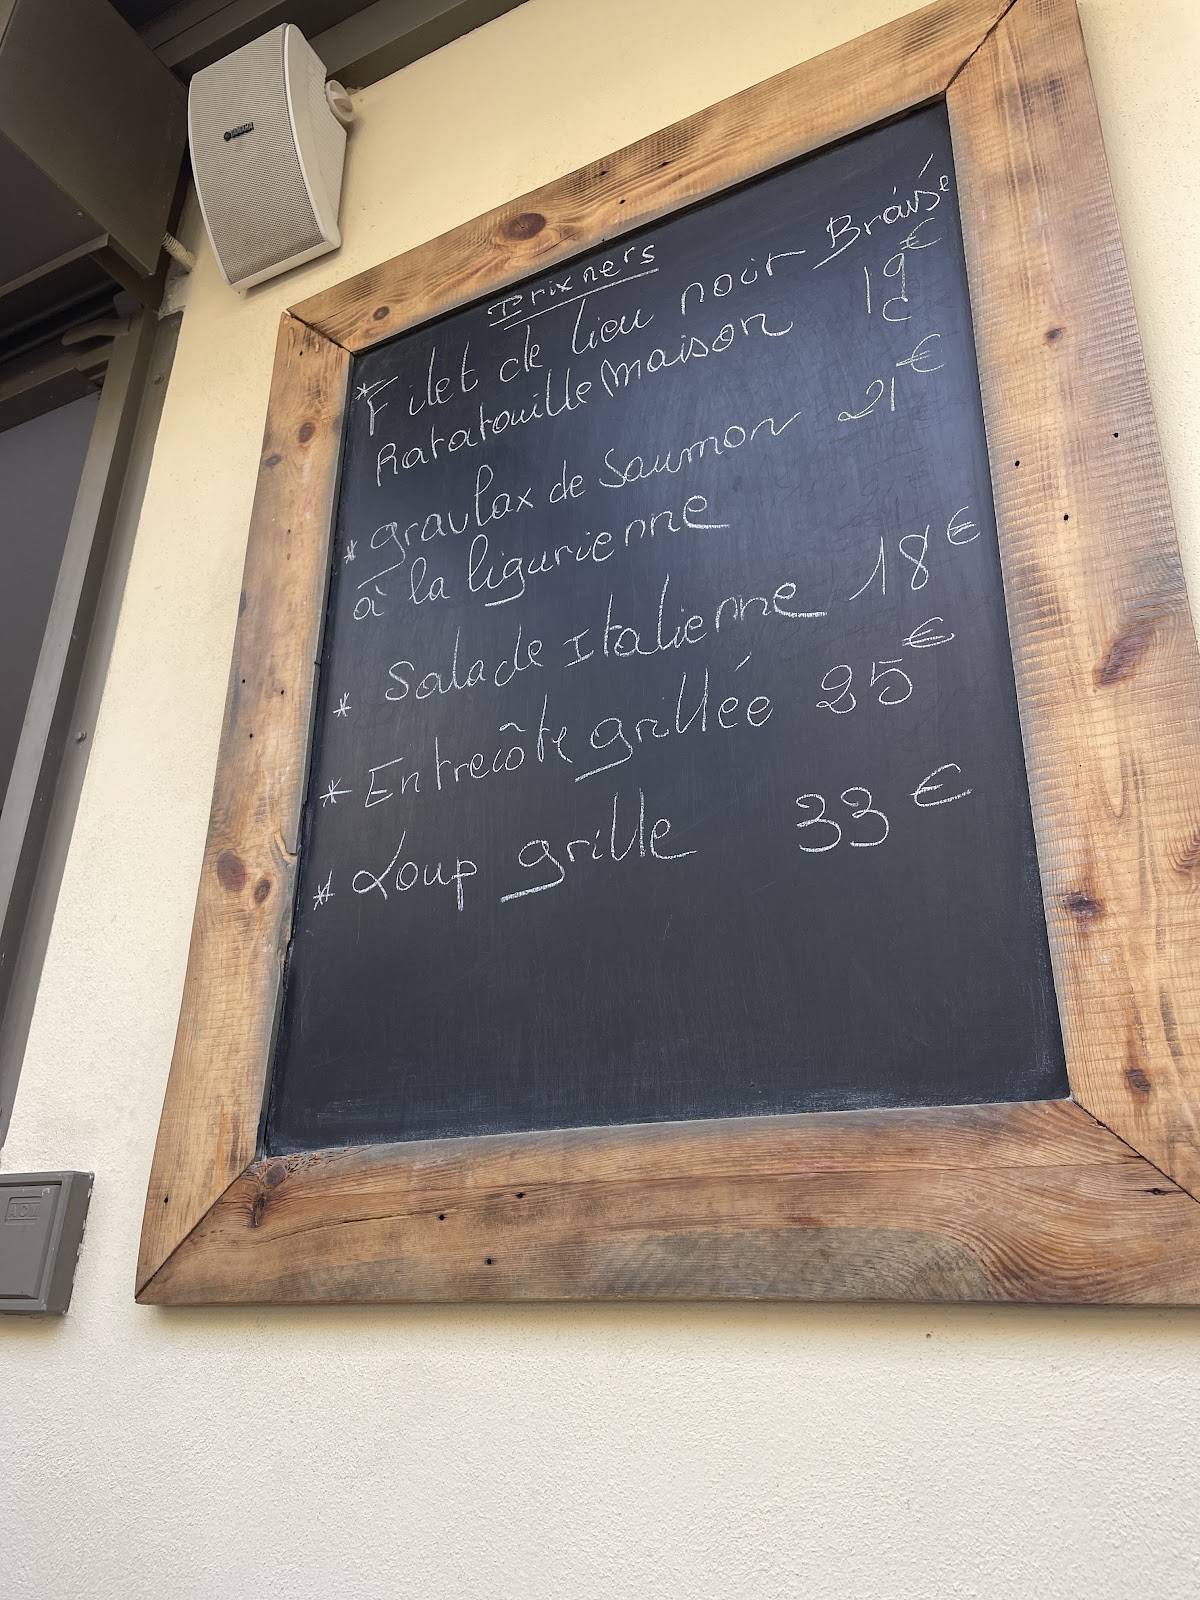 Prixners
* Filet de lieu noir Braisé
Ratatouille maison 19€
* gravlax de Saumon 21€
à la ligurienne
* Salade Italienne 18€
* Entrecôte grillée 25€
* Loup grille 33€
YAMAHA